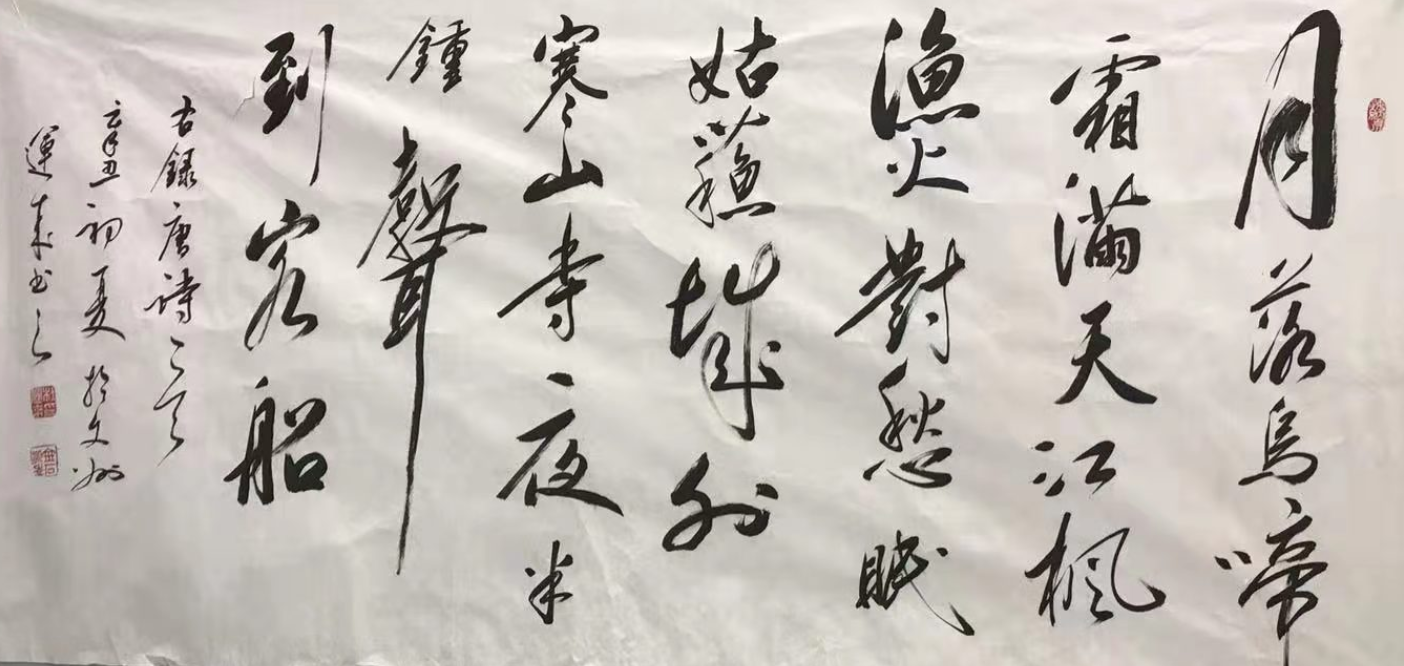 月落烏啼
霜滿天江楓
漁火對愁眠
姑蘓城外
寒山寺夜半
鍾聲
到客船
右録唐詩
辛丑初夏於文州
運來書之